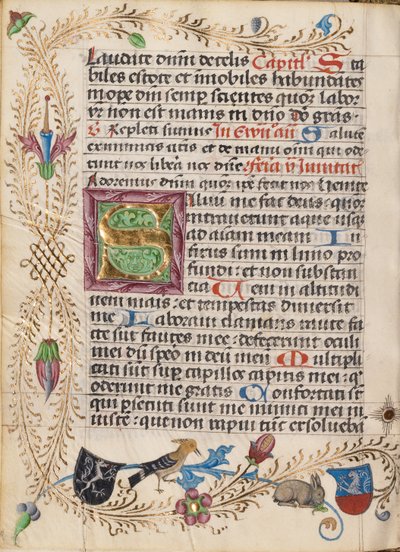 Laudate dnm de celis Capitl' Sta
biles estote et inmobiles habundates
in ope dni semper scientes quor labor
vr non est inanis in dno Do gras
V Repleti sumus In Evn' an Salute
ex inimicis nris et de manu oim qui ode
runt nos libera nos dne feria v Inuitat
Adoremus dnm quor ipe fecit nos Venite
Saluu me fac deus: quor
intrauerunt aque usq
ad aiam meam In
fixus sum in limo pro
fundi: et non est substan
tia Veni in altitudi
nem maris: et tempestas dimersit
me Laboraui clamans rauce fac
te sut fauces mee: defecerunt oculi
mei du spero in deu meu Multipli
cati sut sup capillos capitis mei: q
oderunt me gratis Confortati st
qui persecuti sunt me inimici mei in
iuste: que non rapui tuc exsolueba